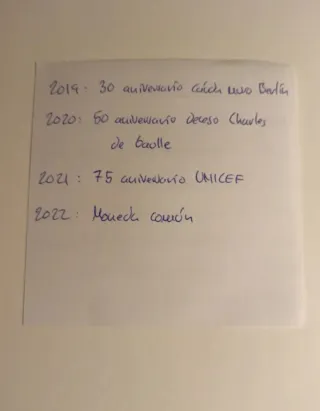 2019: 30 aniversario caída muro Berlín
2020: 50 aniversario deceso Charles
de Gaulle
2021: 75 aniversario UNICEF
2022: Moneda común